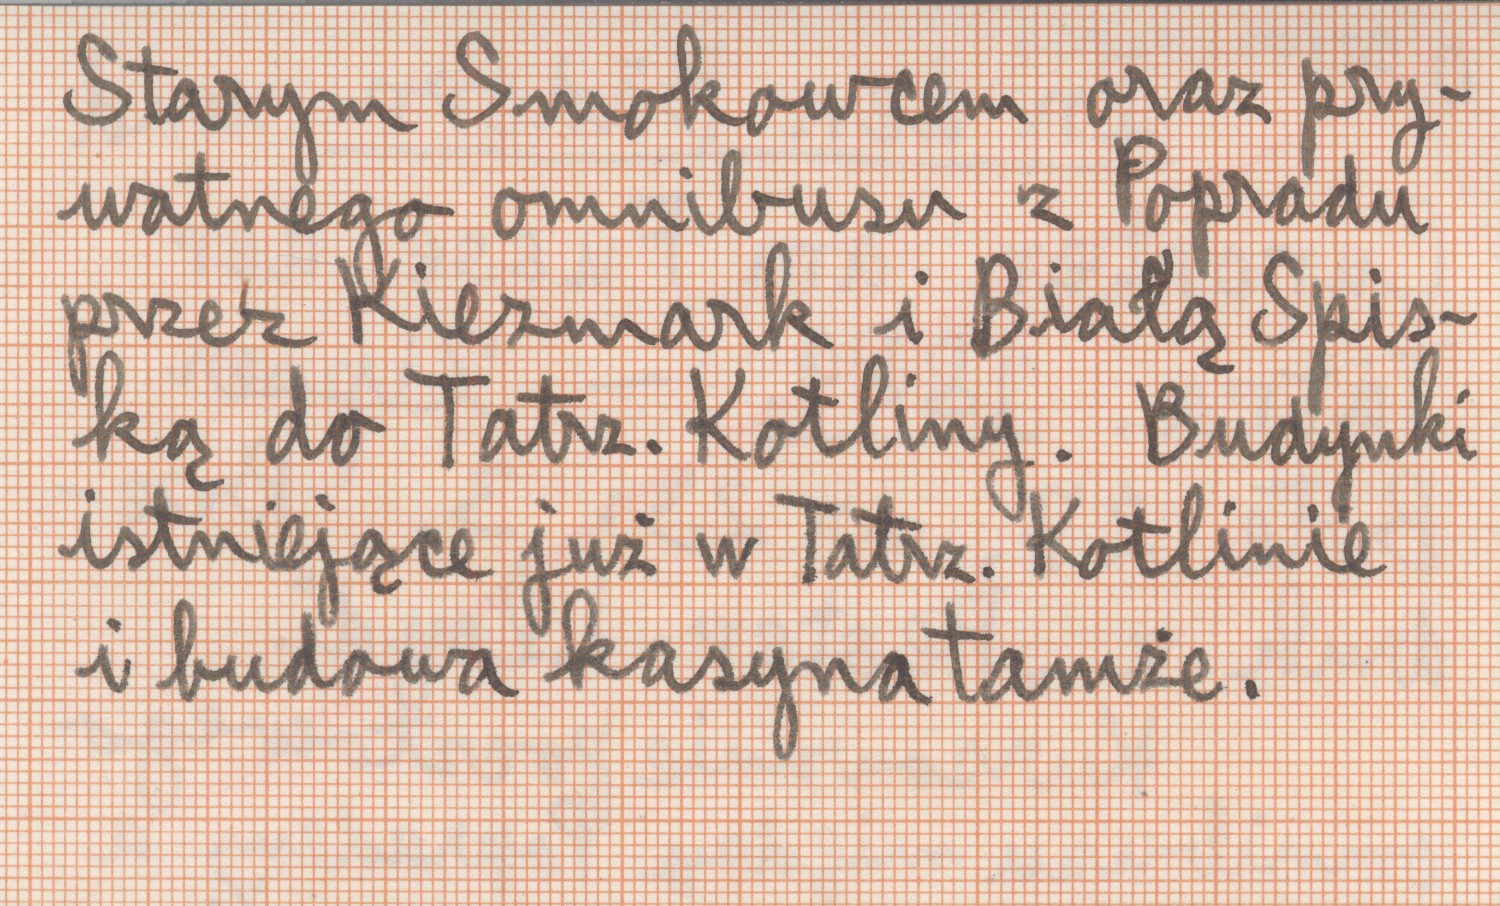 Starym Smokowcem oraz pry-
watnego omnibusu z Popradu
przez Kiezmark i Białą Spis-
ką do Tatrz. Kotliny. Budynki
istniejące już w Tatrz. Kotlinie
i budowa kasyna tamże.